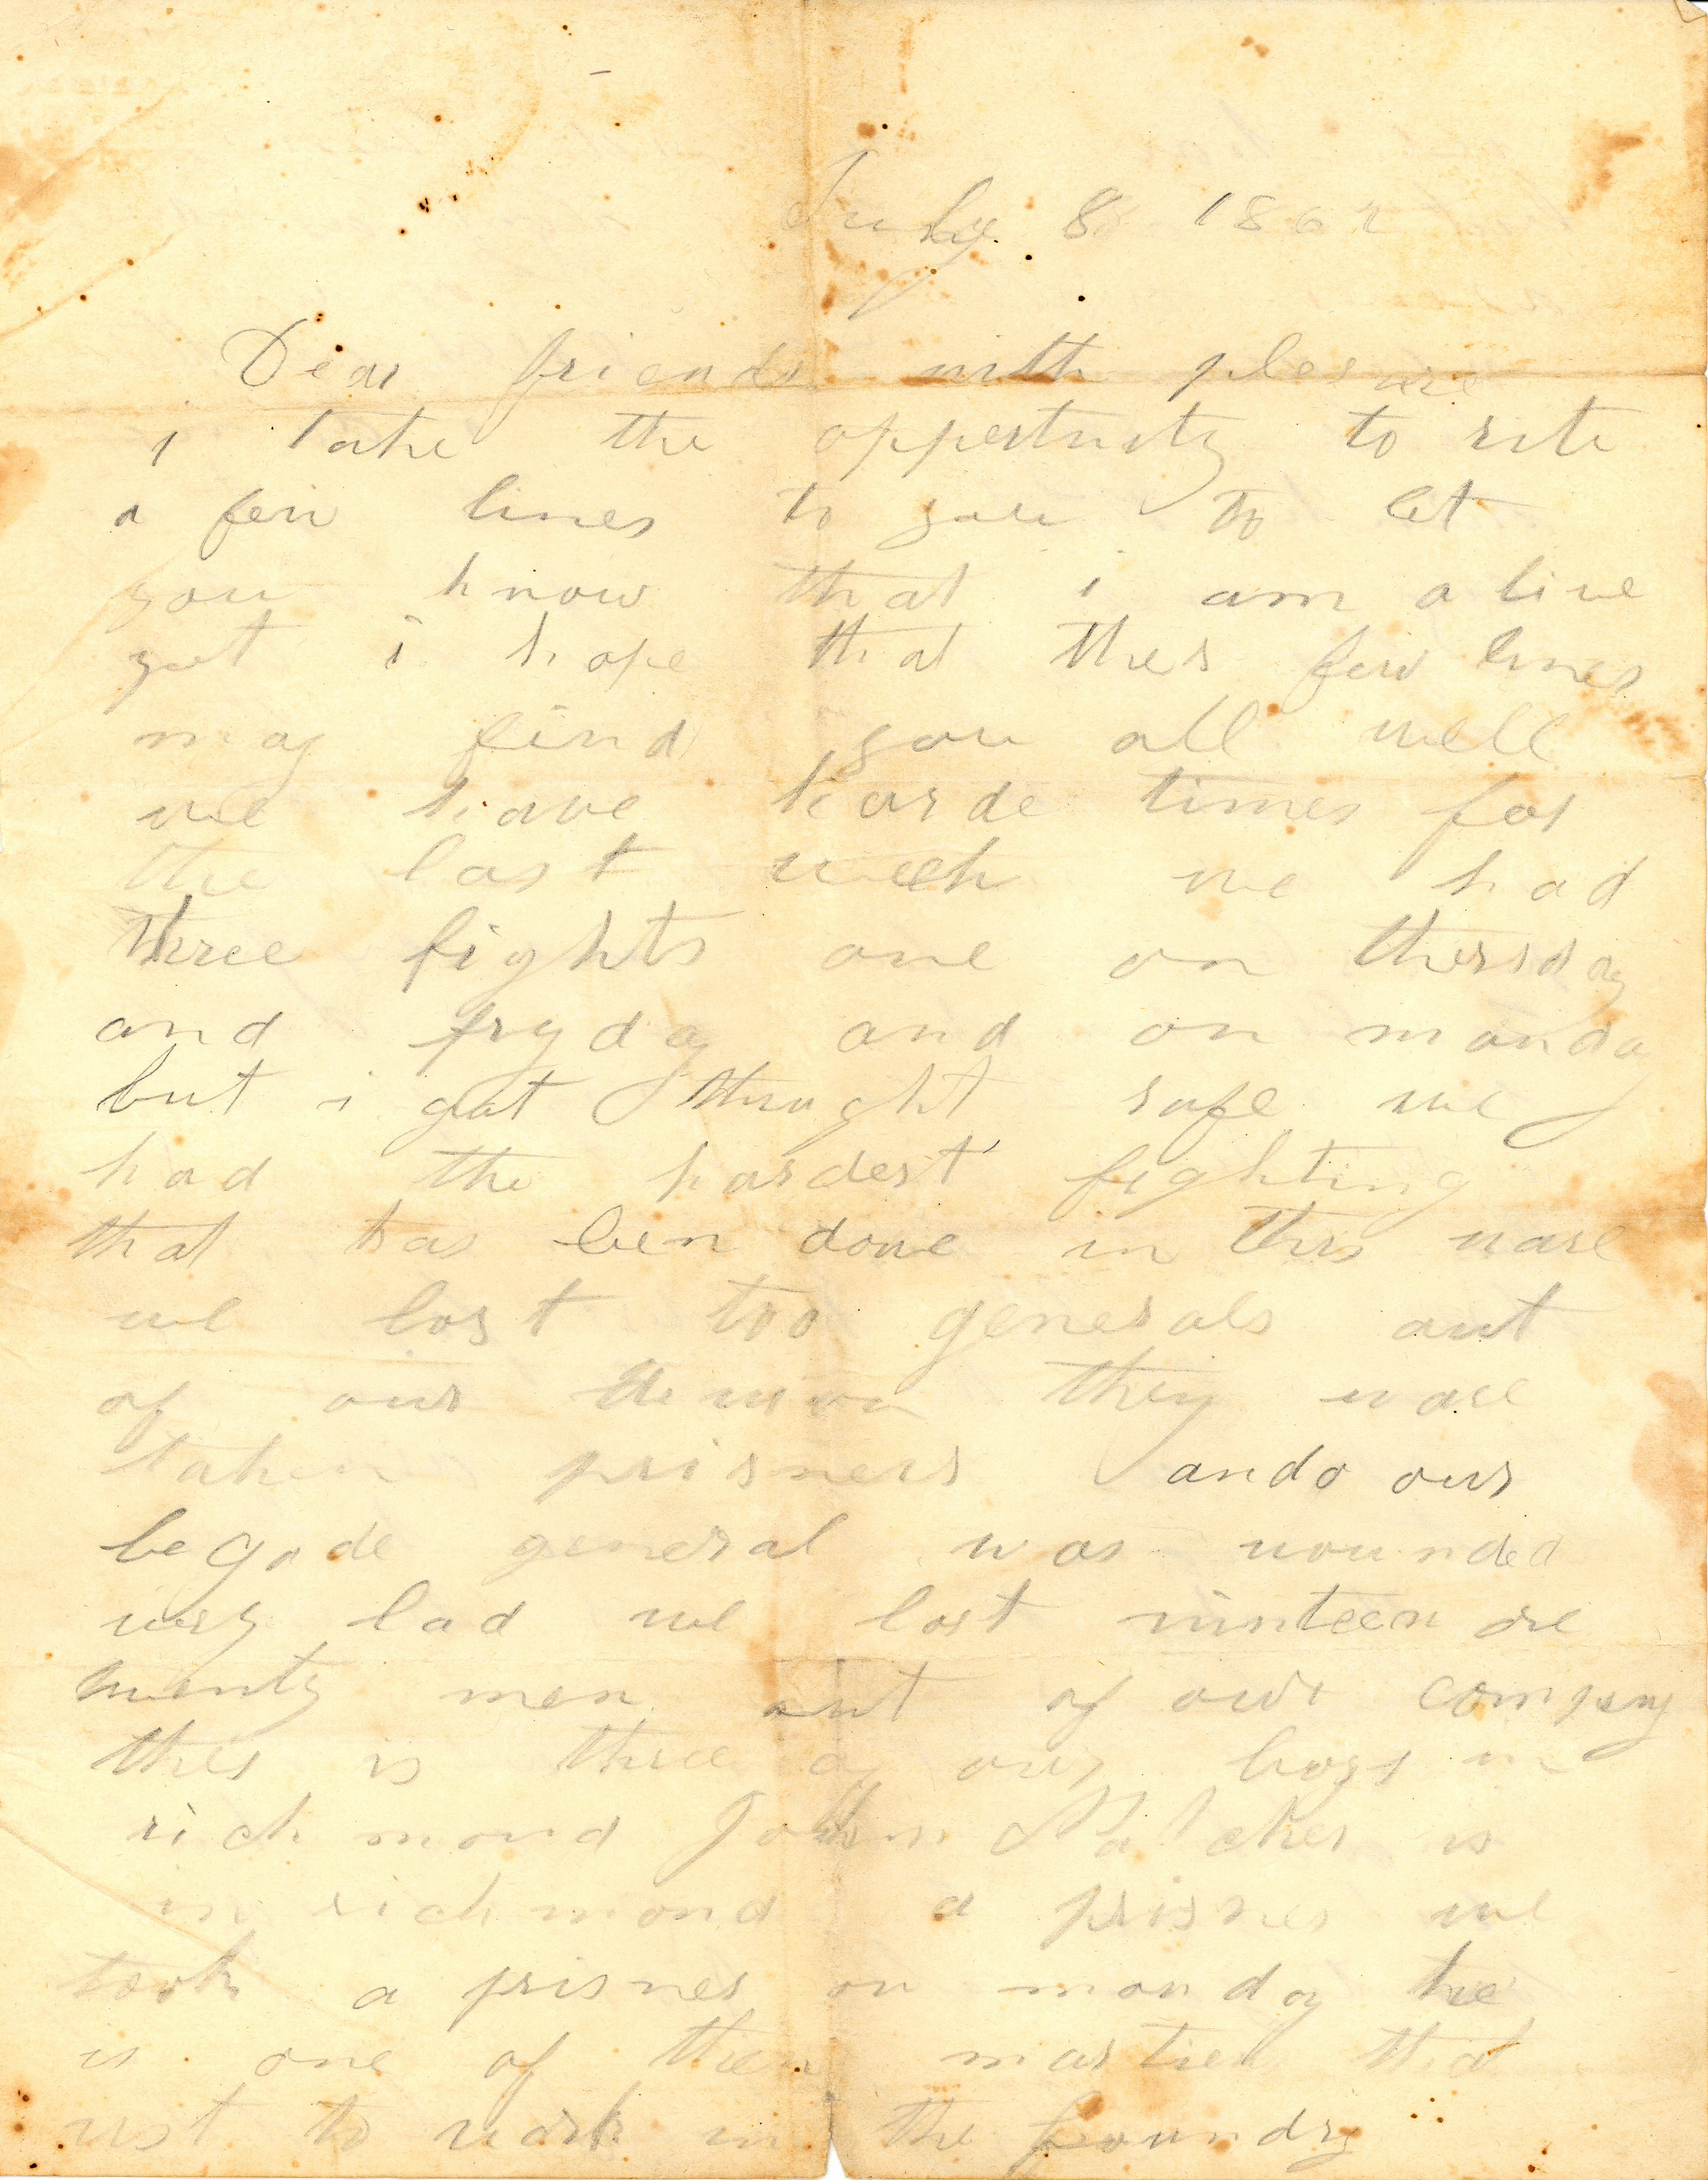 July 8 1862
Dear friends with plesure
i take the oppertuity to rite
a few lines to you to let
you know that i am alive
yet i hope that thes few lines
may find you all well
we have harde times for
the last week we had
three fights one on thersday
and fryday and on monday
but i got thrught safe we
had the hardest fighting
that has ben done in this ware
we lost too generals out
of our they ware
taken prisners and our
begade general was wounded
very bad we lost ninteen ore
twenty men out of our company
ther is three of our boys in
richmond John is
in richmond a prisner we
took a prisner on monday he
is one of them that
ust to work in the foundry